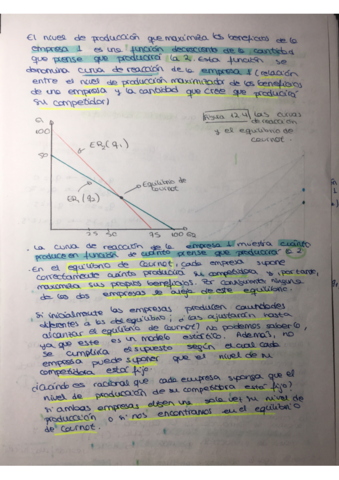 El nivel de producción que maximiza los beneficios de la
empresa 1 es una función decreciente de la cantidad
que piense que producirá la 2. Esta función se
denomina curva de reacción de la empresa 1 (relación
entre el nivel de producción maximizador de los beneficios
de una empresa y la cantidad que cree que producirá
su competidor)
Q1
100
50
ER2(q1)
Equilibrio de
Cournot
ER1(q2)
25 50 75 100 Q2
Figura 12.4 las curvas
de reacción
y el equilibrio de
Cournot.
. La curva de reacción de la empresa 1 muestra cuánto
produce en función de cuánto piense que producirá E.2
. En el equilibrio de Cournot, cada empresa supone
correctamente cuánto producirá su competidora y, por tanto,
maximiza sus propios beneficios. Por consiguiente ninguna
de las dos empresas se aleja de este equilibrio.
. Si inicialmente las empresas producen cantidades
diferentes a las del equilibrio, ¿las ajustarán hasta
alcanzar el equilibrio de Cournot? No podemos saberlo,
ya que este es un modelo estático. Además, no
se cumpliría el supuesto según el cual cada
empresa puede suponer que el nivel de su
competidora está fijo.
. ¿Cuándo es racional que cada empresa suponga que el
nivel de producción de su competidora está fijo?
si ambas empresas eligen una sola vez su nivel de
producción o si nos encontramos en el equilibrio
de Cournot.